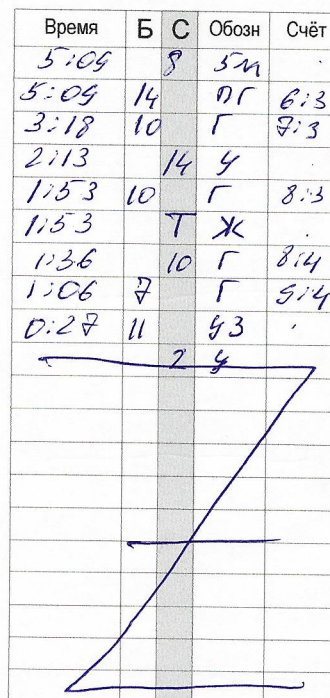 Время Б С Обозн Счёт
5:09 8 5м
5:09 14 ПГ 6:3
3:18 10 Г 7:3
2:13 14 У
1:53 10 Г 8:3
1:53 Т Ж
1:36 10 Г 8:4
1:06 7 Г 9:4
0:27 11 УЗ
2 У